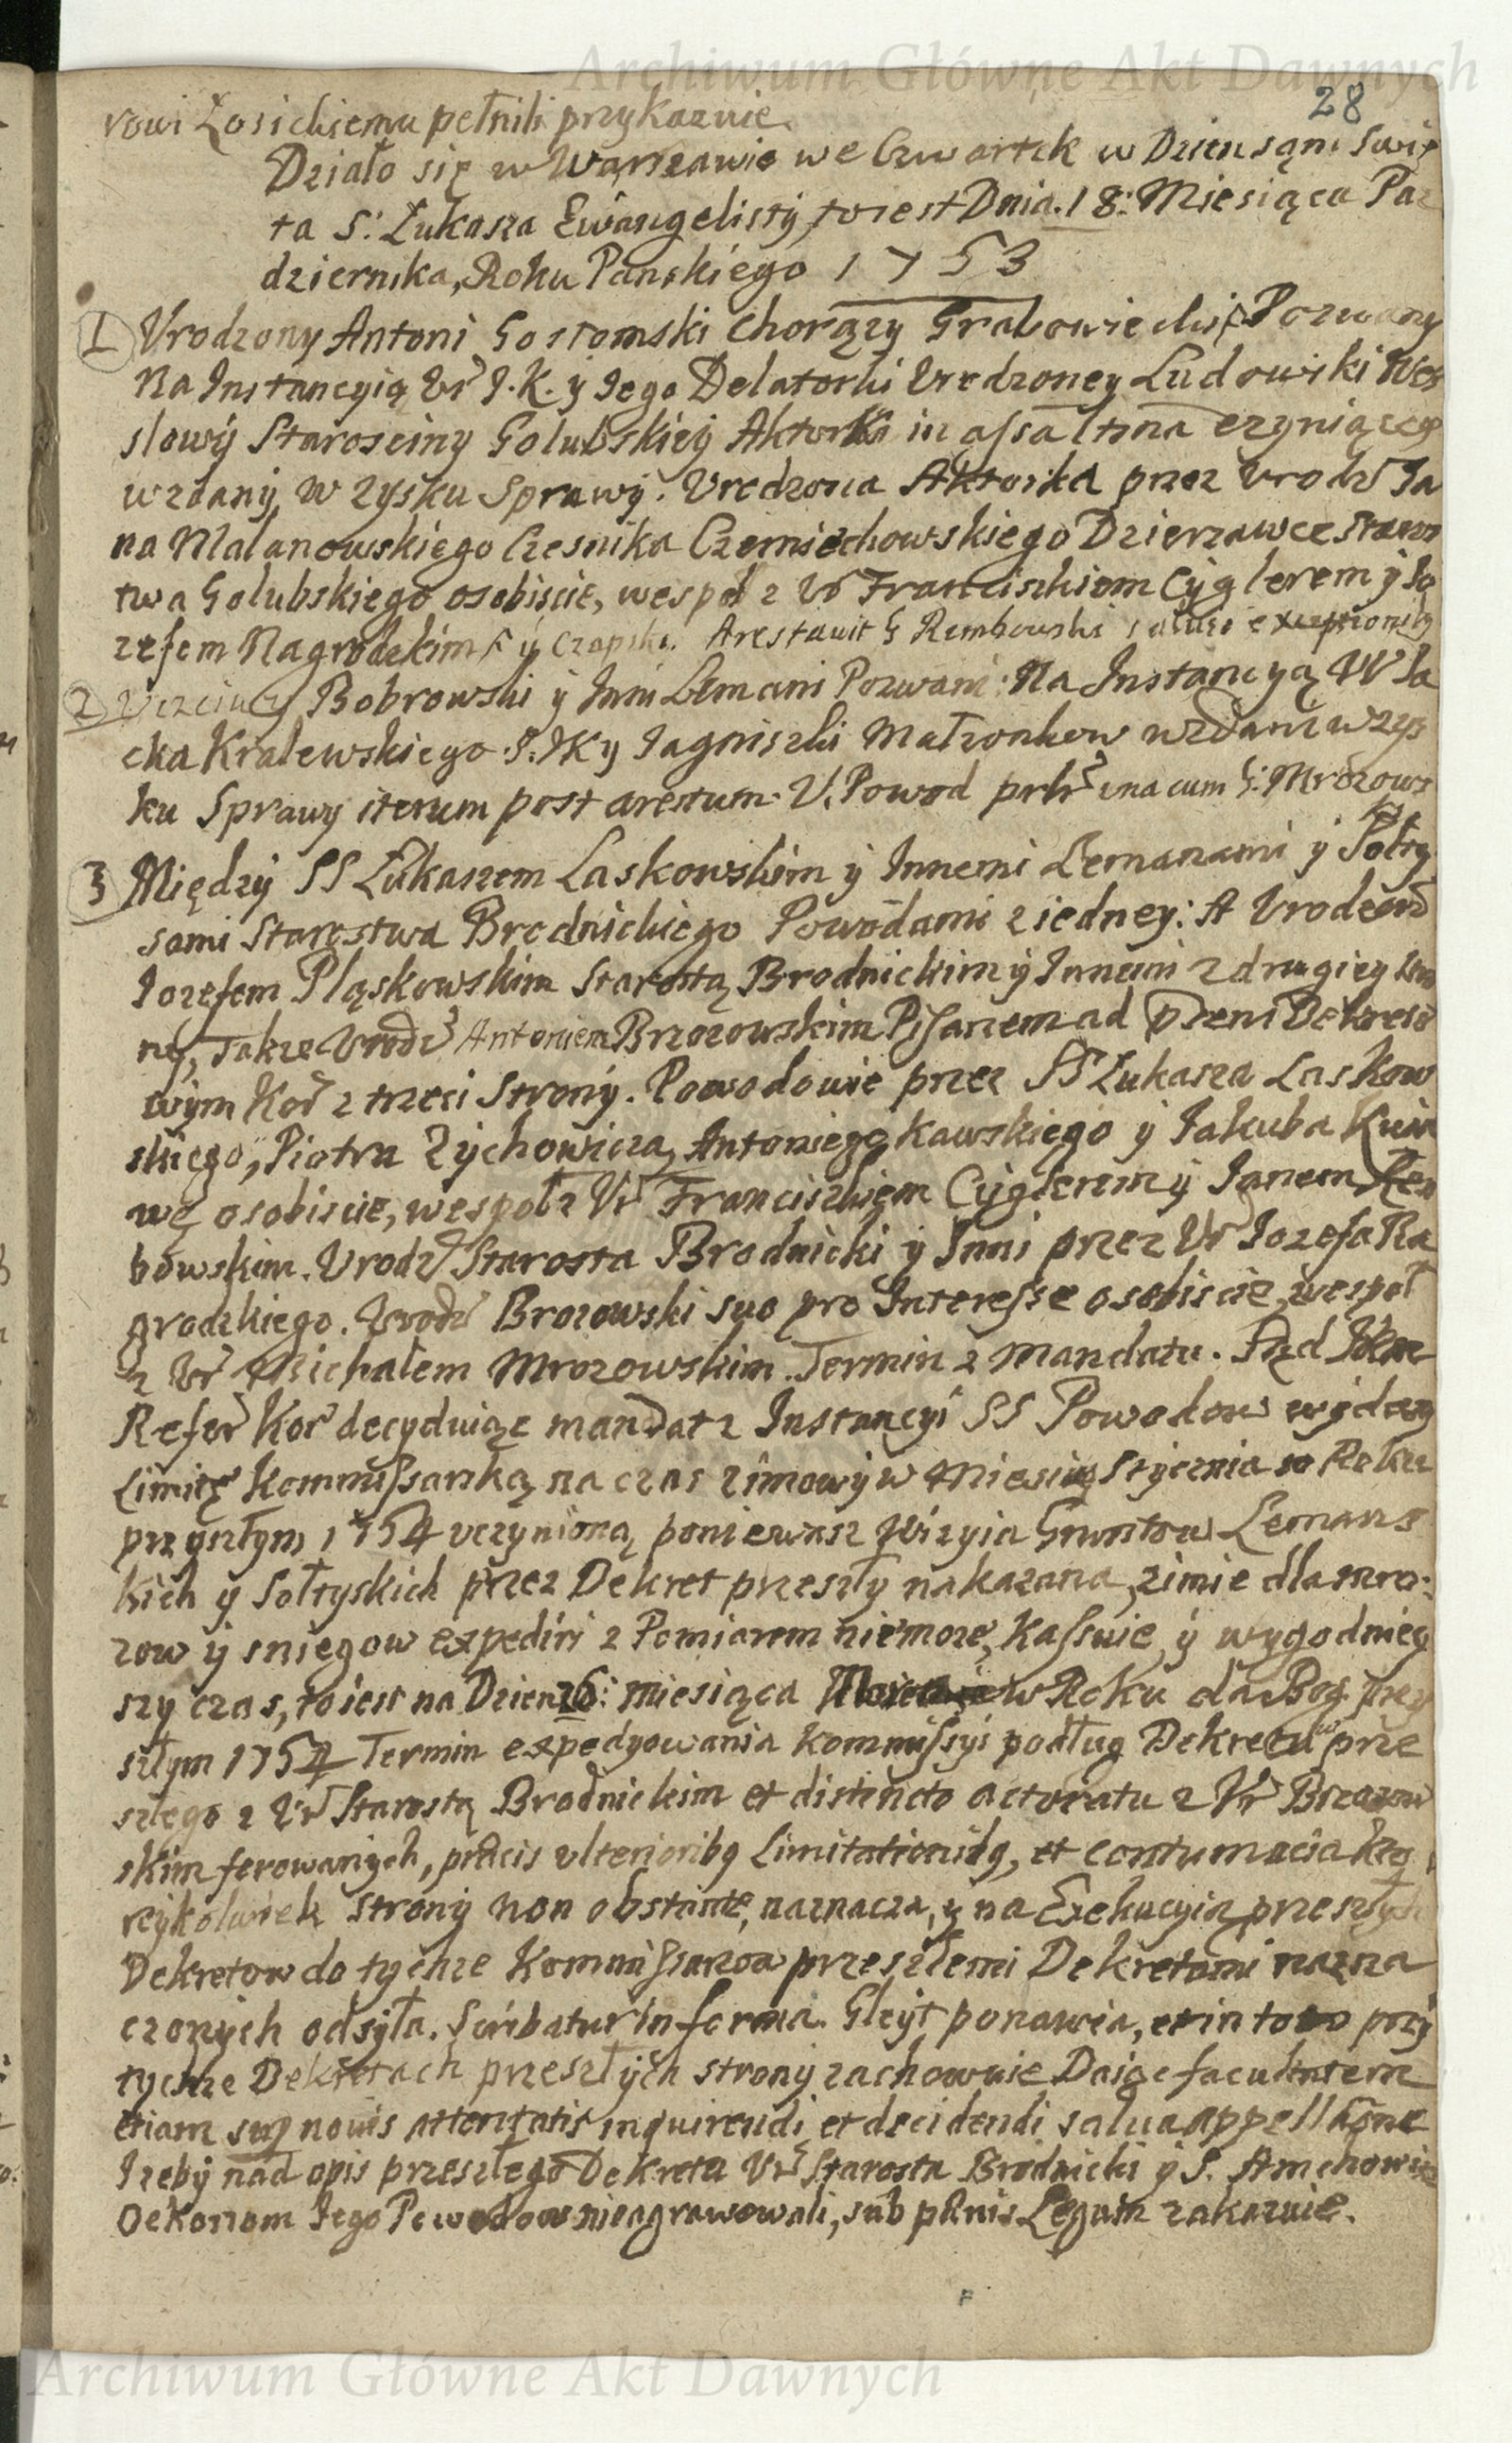 Archiwum Główne Akt Dawnych
28
rowi Łosickiemu pełnili przykazuie.
Działo się w Warszawie we Czwartek w Dzien sąm Swię
ta S: Łukasza Ewangelisty, to iest Dnia. 18: Miesiąca Paz
dziernika, Roku Panskiego 1753
1 Vrodzony Antoni Gostomski Chorązy Grabowiecki Pozwany
Na Instancyią Ur J. K. y Iego Delatorki Vrodzoney Ludowiki Wes
slowy Starosciny Golubskiey Aktorka in czyniącey
wzdany w zysku Sprawy. Vrodzona Aktorka przez Vrodz Ia
na Malanowskiego Czesnika Czerniechowskiego Dzierzawce staros
twa Golubskiego osobiscie, wespoł z Ur Franciszkiem Cyglerem y Io
zefem Nagrodzkim y Czapski. Arestavit G Rembowski salvis exceptionibq
2 Bobrowski y Inni Lemani Pozwani: Na Instancyą W Ia
cka Kralewskiego J. K y Iagniszki Małzonkow wzdani w zys
ku Sprawy iterum post arestum. V. Powod una cum G: Mrozows
3 Między SS Łukaszem Laskowskim y Innemi Lemanami y Sołty
sami Starostwa Brodnickiego Powodami z iedney: A Vrodzon
Iozefem Pląskowskim Starostą Brodnickim y Innemi z drugiey
ny, Takze Vrodz Antoniem Brzozowskim Pisarzem ad Dekreto
wym Kor z trzeci Strony. Powodowie przez SS Łukasza Laskow
skiego, Piotra Zychowicza, Antoniego Kawskiego y Iakuba
wę osobiscie, wespoł z Ur Franciszkiem Cyglerem y Ianem Rem
bowskim. Vrodz Starosta Brodnicki y Inni przez Ur Iozefa Na
grodzkiego. Vrodz Brozowski suo pro Interesse osobiscie wespoł
z Ur Michałem Mrozowskim. Termin z Mandatu. Sąd
Refer Kor decyduiąc mandat z Instancyi SS Powodow wydany
Limitę Kommissarską na czas zimowy w Miesiąc Stycznia w Roku
przyszłym 1754 vczynioną poniewasz Wizyia Gruntow Lemans
kich y Sołtyskich przez Dekret przeszły nakazana, zimie dla mro:
zow y sniegow expediri z Pomiarem niemoze, Kassuie, y wygodniey
szy czas, to iest na Dzien 26: miesiąca w Roku da Bog przy
szłym 1754 Termin expedyowania Kommissyi podług Dekretu prze
szłego z Ur Starostą Brodnickim et distincto actoratu z Ur Brzozow
skim ferowanych, ulterioribq Limitationibq, et contumacia
reykolwiek Strony non obstante, naznacza, y na Exekucyią przeszłych
Dekretow do tychze Kommissarzow przeszłemi Dekretami nazna
czonych odsyła. Scribatur in forma. Gleyt ponawia, et in toto przy
tychze Dekretach przeszłych strony zachowuie Daiąc facultatem
etiam sup novis attentatis inquirendi et decidendi salva appellaōne
Izeby nad opis przeszłego Dekretu Ur Starosta Brodnicki y S.
Oekonom Iego Powodow nieagrawowali, sub pœnis Legum zakazuie.
Archiwum Główne Akt Dawnych